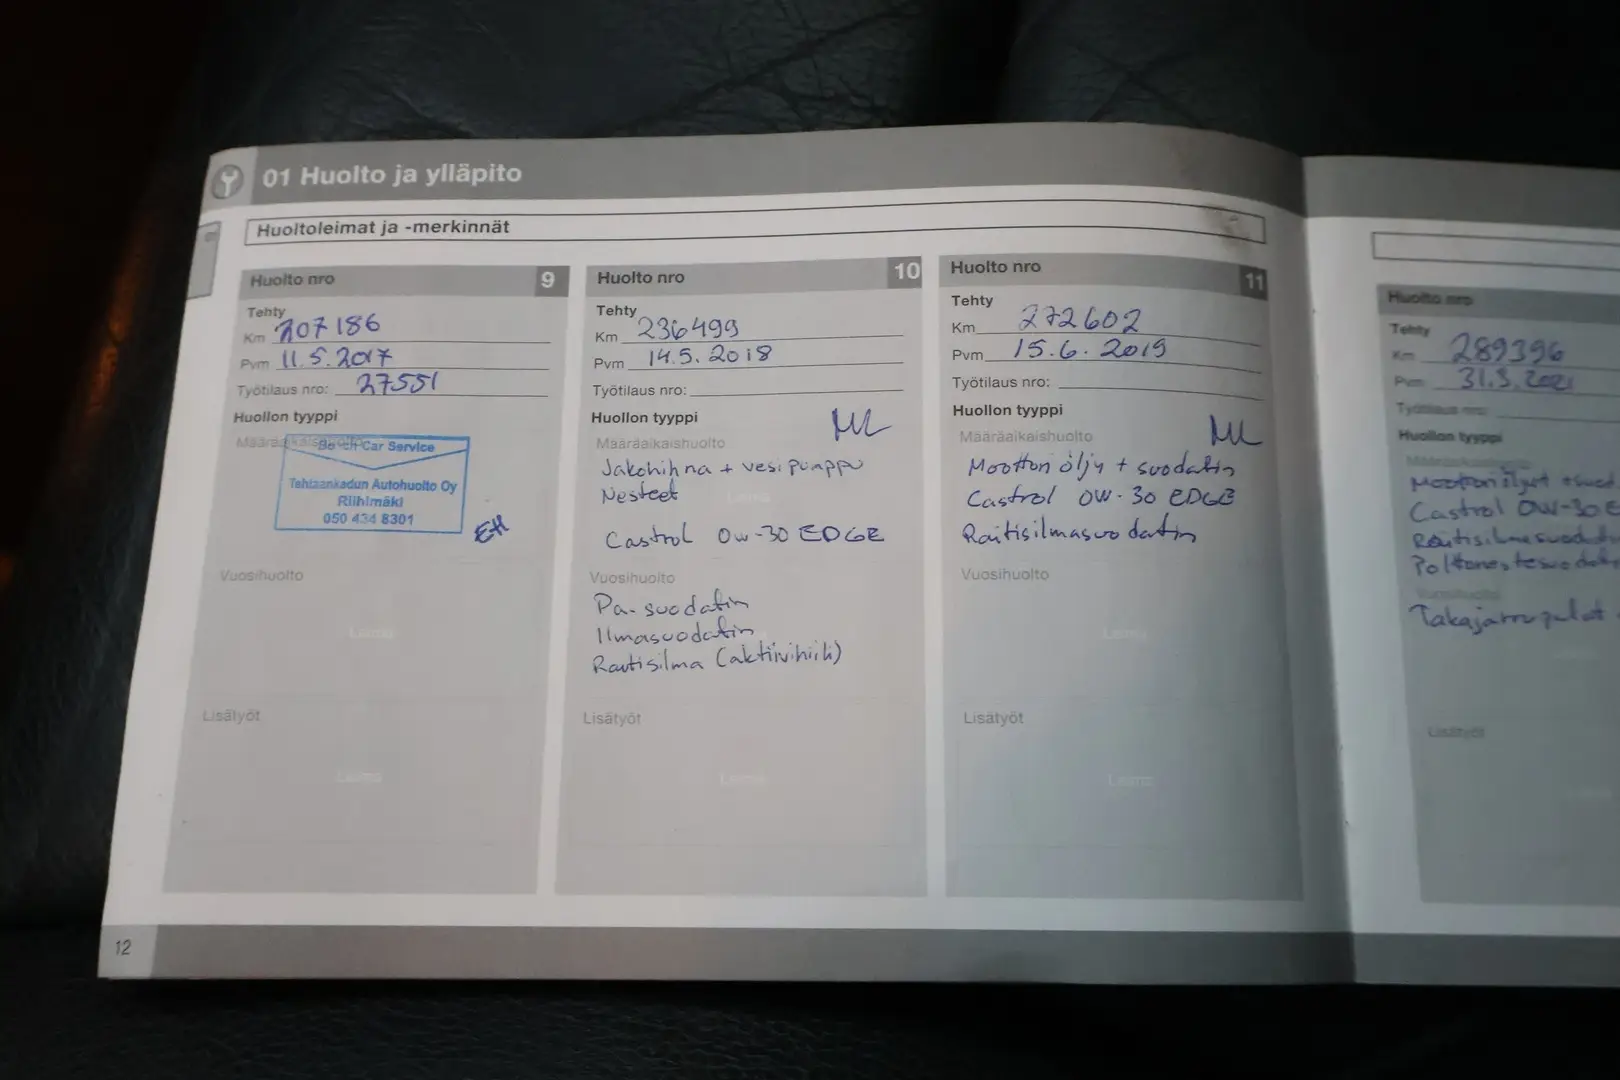 01 Huolto ja ylläpito
Huoltoleimat ja -merkinnät
Huolto nro 9
Tehty
Km 207186
Pvm 11.5.2017
Työtilaus nro: 27551
Huollon tyyppi
Määräaikaishuolto
Bosch Car Service
Tehtaankadun Autohuolto Oy
Riihimäki
050 434 8301
EH
Vuosihuolto
Leima
Lisätyöt
Leima
Huolto nro 10
Tehty
Km 236499
Pvm 14.5.2018
Työtilaus nro:
Huollon tyyppi
Määräaikaishuolto
Jakohihna + vesipumppu
Nesteet
Castrol 0w-30 EDGE
Vuosihuolto
Pa-suodatin
Ilmasuodatin
Raitisilma (aktiivihiili)
Lisätyöt
Leima
Huolto nro 11
Tehty
Km 272602
Pvm 15.6.2019
Työtilaus nro:
Huollon tyyppi
Määräaikaishuolto
Moottori öljy + suodatin
Castrol 0W-30 EDGE
Raitisilmasuodatin
Vuosihuolto
Leima
Lisätyöt
Leima
12
Huolto nro
Tehty
Km 289396
Pvm 31.3.2021
Työtilaus nro:
Huollon tyyppi
Määräaikaishuolto
Moottoriöljyt
Castrol 0W-30
Vuosihuolto
Takajarrupalat
Lisätyöt